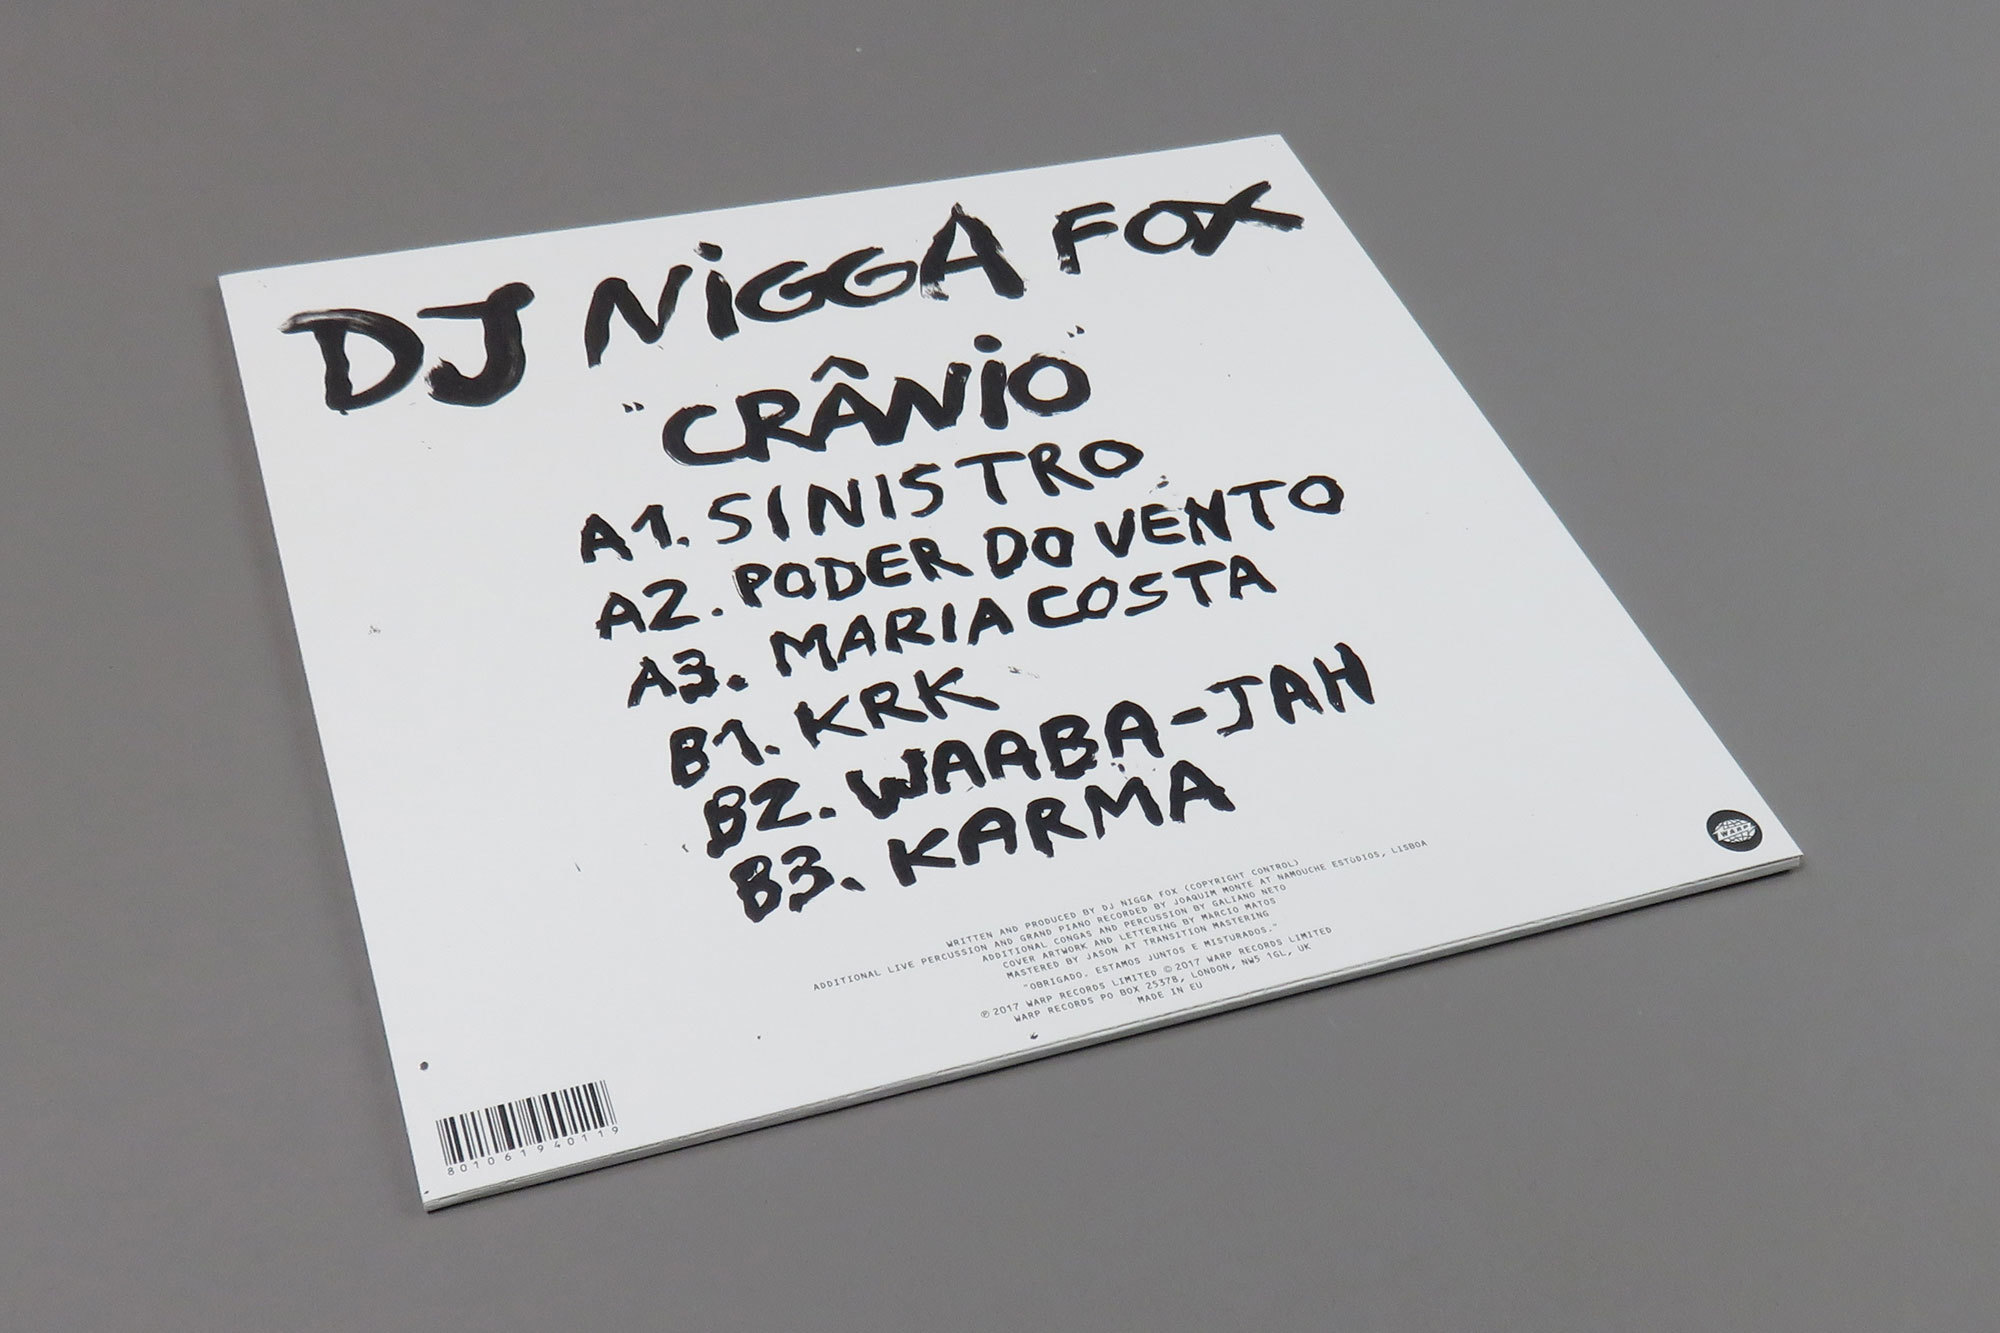 DJ NiGGA FOX
"CRÂNiO"
A1. SINISTRO
A2. PODER DO VENTO
A3. MARIA COSTA
B1. KRK
B2. WAABA-JAH
B3. KARMA
WRITTEN AND PRODUCED BY DJ NIGGA FOX (COPYRIGHT CONTROL)
ADDITIONAL LIVE PERCUSSION AND GRAND PIANO RECORDED BY JOAQUIM MONTE AT NAMOUCHE ESTÚDIOS, LISBOA
ADDITIONAL CONGAS AND PERCUSSION BY GALIANO NETO
COVER ARTWORK AND LETTERING BY MARCIO MATOS
MASTERED BY JASON AT TRANSITION MASTERING
"OBRIGADO. ESTAMOS JUNTOS E MISTURADOS."
℗ 2017 WARP RECORDS LIMITED © 2017 WARP RECORDS LIMITED
WARP RECORDS PO BOX 25378, LONDON, NW5 1GL, UK
MADE IN EU
WARP
801061940119